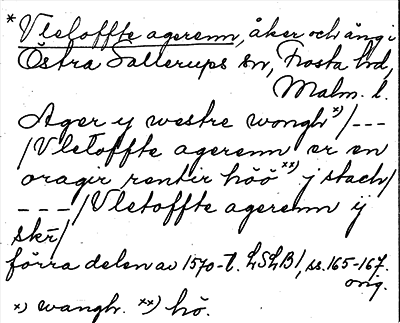 * Vletoffte agerenn, åker och äng i
Östra Sallerups sn, Frosta hd,
Malm. l.
Ager y westre wonghˣ⁾/---
/Vletoffte agerenn er en
oragir rentir hööˣˣ⁾ j stach/
---/Vletoffte agerenn ij
skr/
förra delen av 1570-t. LSLB1, ss. 165-167.
orig.
x) wangh. xx) hö.